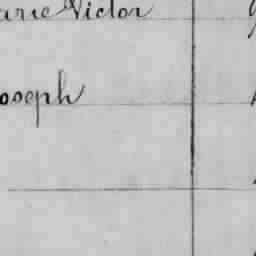 arie Victor
oseph